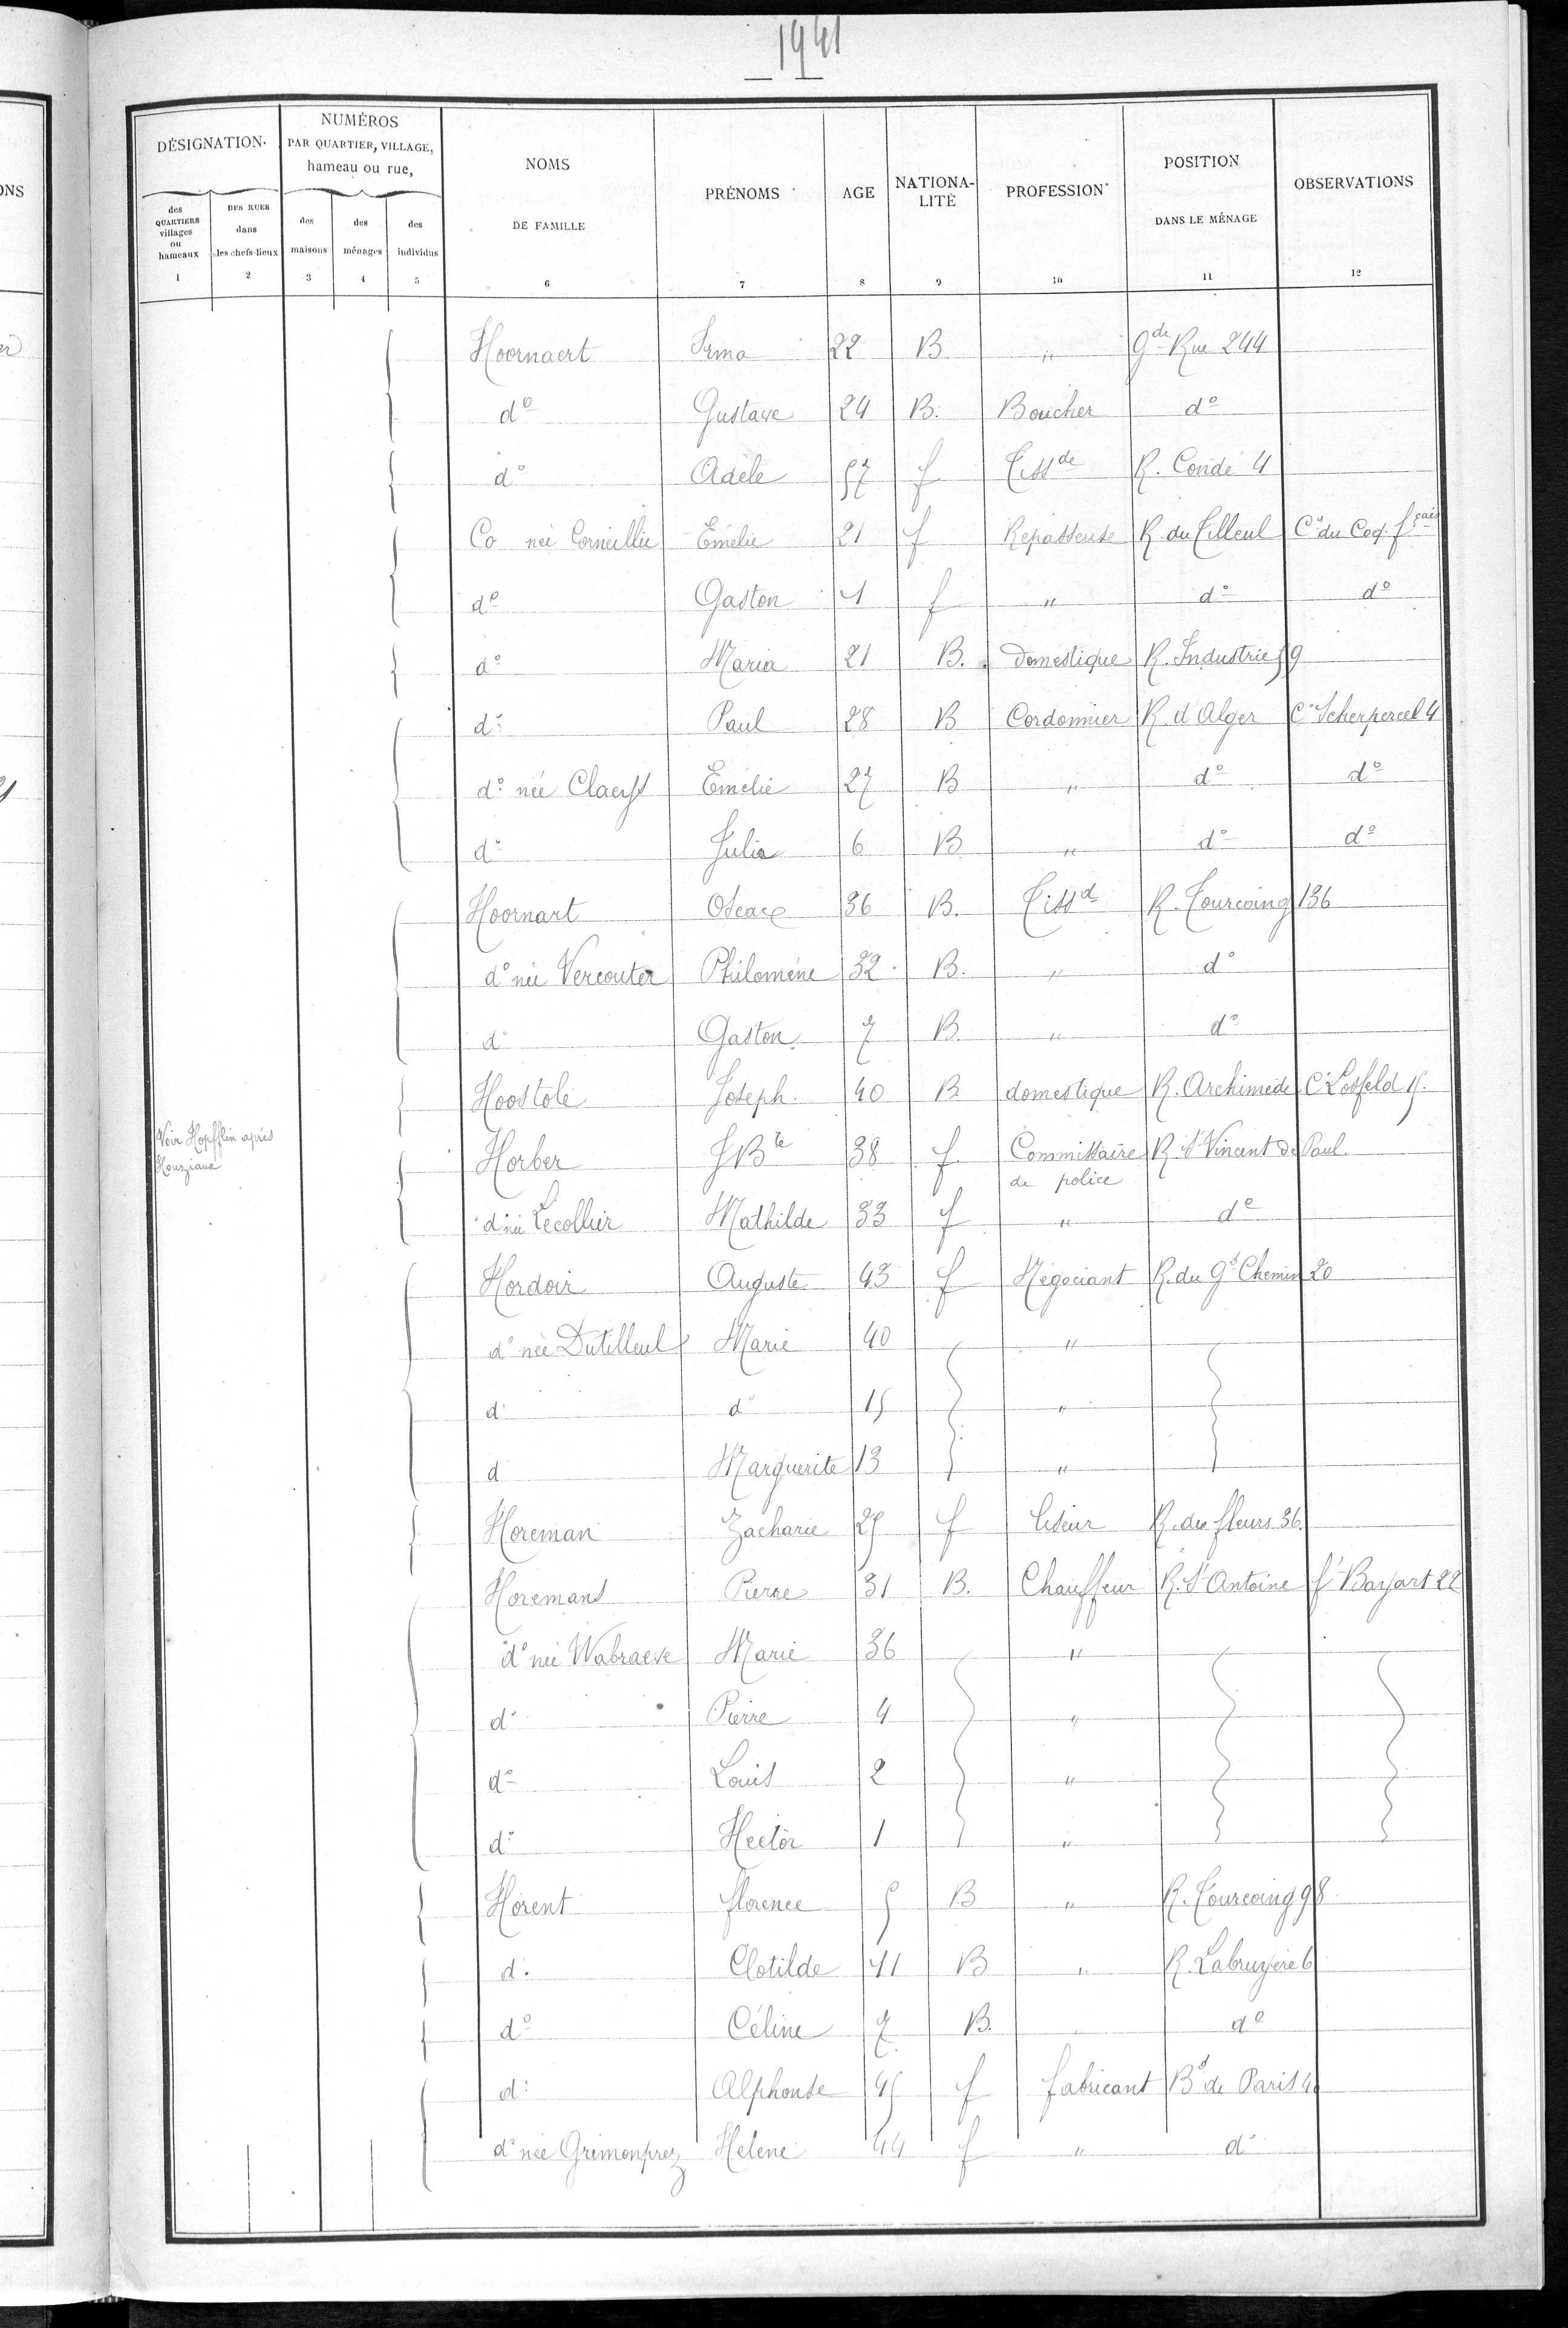 1941
DÉSIGNATION.
NUMÉROS
PAR QUARTIER, VILLAGE,
hameau ou rue,
NOMS
DE FAMILLE
PRÉNOMS
AGE
NATIONA-
LITÉ
PROFESSION
POSITION
DANS LE MÉNAGE
OBSERVATIONS
des QUARTIERS villages ou hameaux
DES RUES dans les chefs-lieux
des maisons
des ménages
des individus
1 2 3 4 5 6 7 8 9 10 11 12
Hoornaert Irma 22 B " Gde Rue 244
do Gustave 24 B. Boucher do
do Adèle 57 f Tissde R. Condé 4
Co née Corneillie Emélie 21 f Repasseuse R. du Tilleul Cr du Coq fçais
do Gaston 1 f " do do
do Maria 21 B. Domestique R. Industrie 59
do Paul 28 B Cordonnier R. d'Alger Cr Scherpereel 4
do née Claeys Emélie 27 B " do do
do Julia 6 B " do do
Hoornart Oscar 36 B. Tissd R. Tourcoing 136
do née Vercouter Philomène 32 B. " do
do Gaston 7 B. " do
Hoostole Joseph 40 B. domestique R. Archimède Cr Losfeld 15.
Voir Hopfflin après
Houziaux
Horber JBte 38 f Commissaire R. St Vincent de Paul.
de police
do née Lecollier Mathilde 33 f " do
Hordoir Auguste 43 f Négociant R. du Gd Chemin 20
do née Dutilleul Marie 40 "
do do 15 "
d Marguerite 13 "
Horeman Zacharie 25 f liseur R. des fleurs 36.
Horemans Pierre 31 B. Chauffeur R. St Antoine ft Bayart 22
do née Wabraeve Marie 36 "
do Pierre 4 "
do Louis 2 "
do Hector 1 "
Horent florence 5 B " R. Tourcoing 98
d. Clotilde 41 B " R. Labruyère 6
do Céline 7 B. do
do Alphonse 45 f fabricant Bd de Paris 40
do née Grimonprez Helene 44 f " do